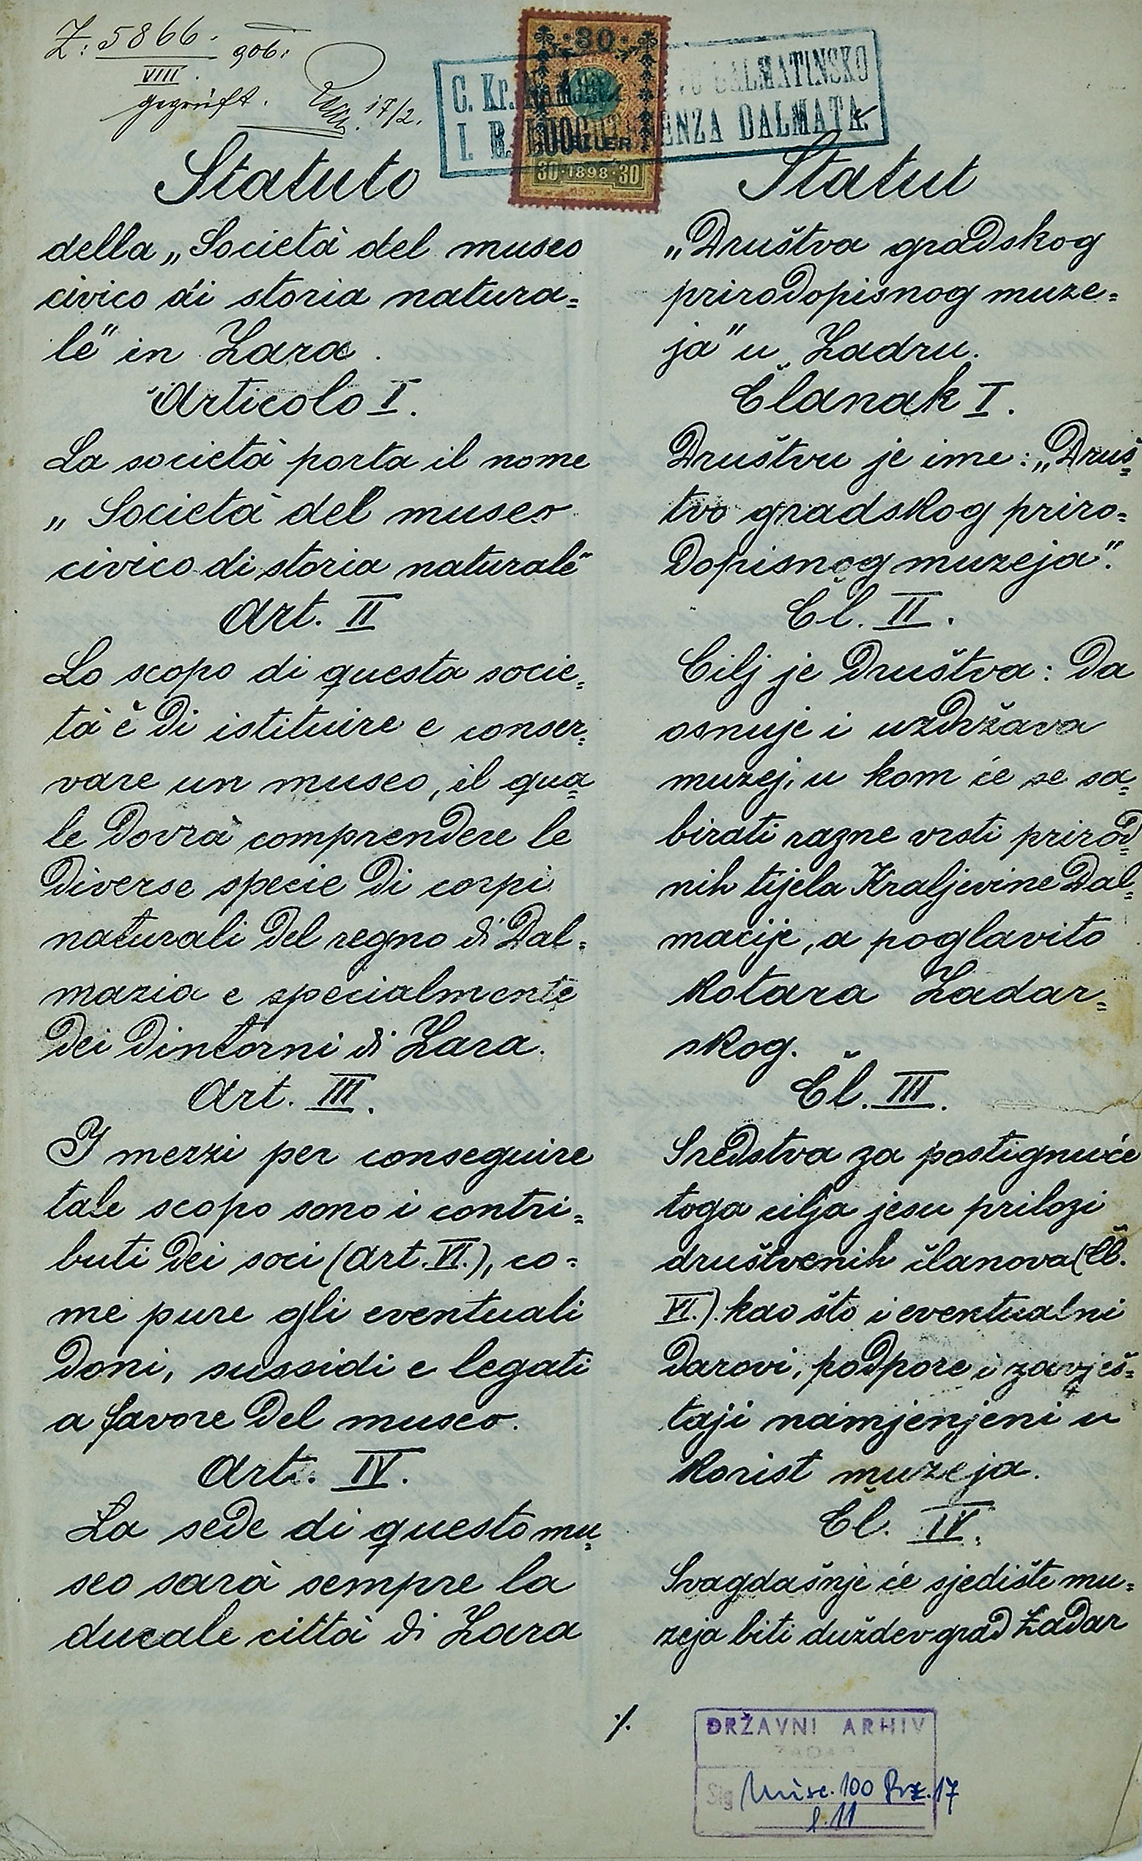 Z: 5866. 906:
VIII.
geprüft. 17/2.
30
C. Kr. DALMATINSKO
I. R. LUOGOTENENZA DALMATA.
30 · 1898 · 30
Statuto
della „Società del museo
civico di storia natura=
le" in Zara.
Articolo I.
La società porta il nome
„Società del museo
civico di storia naturale"
Art. II
Lo scopo di questa socie=
tà è di istituire e conser=
vare un museo, il qua=
le dovrà comprendere le
diverse specie di corpi
naturali del regno di Dal=
mazia e specialmente
dei dintorni di Zara.
Art. III.
I mezzi per conseguire
tale scopo sono i contri=
buti dei soci (Art. VI.), co=
me pure gli eventuali
doni, sussidi e legati
a favore del museo.
Art. IV.
La sede di questo mu=
seo sarà sempre la
ducale città di Zara
Statut
„Društva gradskog
prirodopisnog muze=
ja" u Zadru.
Članak I.
Društvu je ime: „Druš=
tvo gradskog priro=
dopisnog muzeja".
Čl. II.
Cilj je društva: da
osnuje i uzdržava
muzej, u kom će se sa=
birati razne vrsti prirod=
nih tijela Kraljevine Dal=
macije, a poglavito
kotara Zadar=
skog.
Čl. III.
Sredstva za postignuće
toga cilja jesu prilozi
društvenih članova (Čl.
VI.) kao što i eventualni
darovi, podpore i zavješ=
taji namjenjeni u
korist muzeja.
Čl. IV.
Svagdašnje će sjedište mu=
zeja biti duždev grad Zadar
./.
DRŽAVNI ARHIV
ZADAR
Sig Misc. 100 Poz. 17
l. 11